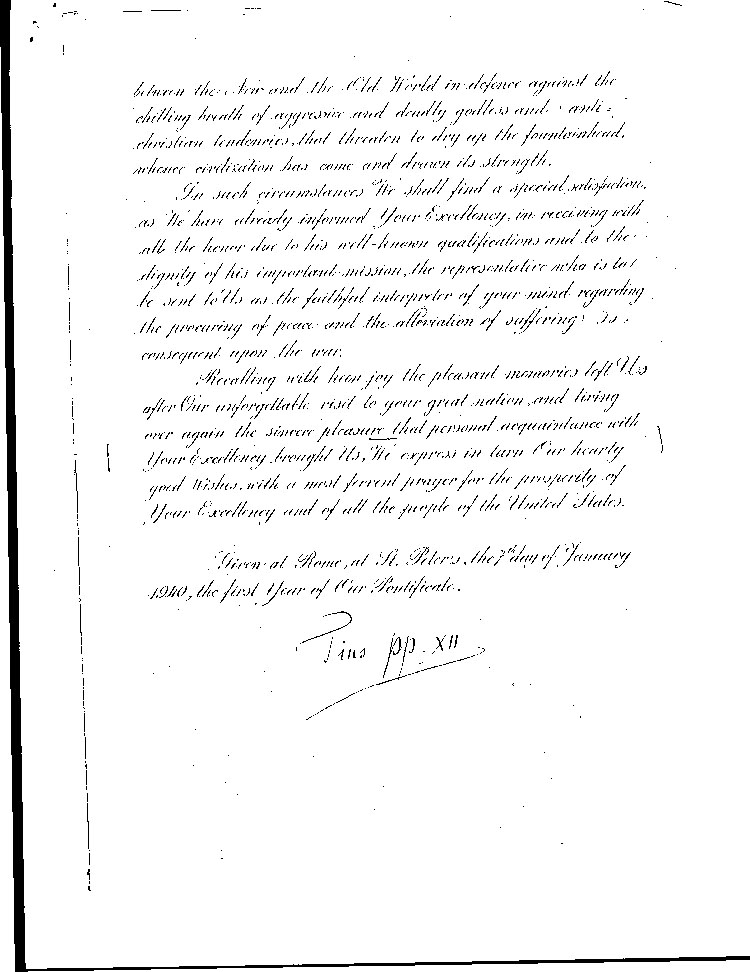 between the New and the Old World in defence against the
chilling breath of aggressive and deadly godless and anti-
christian tendencies, that threaten to dry up the fountainhead,
whence civilization has come and drawn its strength.
In such circumstances We shall find a special satisfaction,
as We have already informed Your Excellency, in receiving with
all the honor due to his well-known qualifications and to the
dignity of his important mission, the representative who is to
be sent to Us as the faithful interpreter of your mind regarding
the procuring of peace and the alleviation of sufferings
consequent upon the war.
Recalling with keen joy the pleasant memories left Us
after Our unforgettable visit to your great nation, and living
over again the sincere pleasure that personal acquaintance with
Your Excellency brought Us, We express in turn Our hearty
good Wishes, with a most fervent prayer for the prosperity of
Your Excellency and of all the people of the United States.
Given at Rome, at St. Peter's, the 7th day of January
1940, the first Year of Our Pontificate.
Pius pp. XII